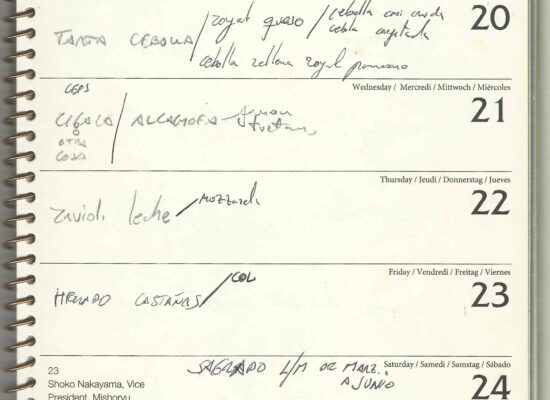 20
TARTA CEBOLLA / royal queso / cebolla
cebolla rellena royal parmesano
Wednesday / Mercredi / Mittwoch / Miércoles
21
CEPS
CIGALA / ALCACHOFA
O
OTRA
COSA
Thursday / Jeudi / Donnerstag / Jueves
22
leche /
Friday / Vendredi / Freitag / Viernes
23
HELADO CASTAÑAS / COL
Saturday / Samedi / Samstag / Sábado
24
SAGRADO L/M DE MARZ.
A JUNIO
23
Shoko Nakayama, Vice
President, Mishoryu